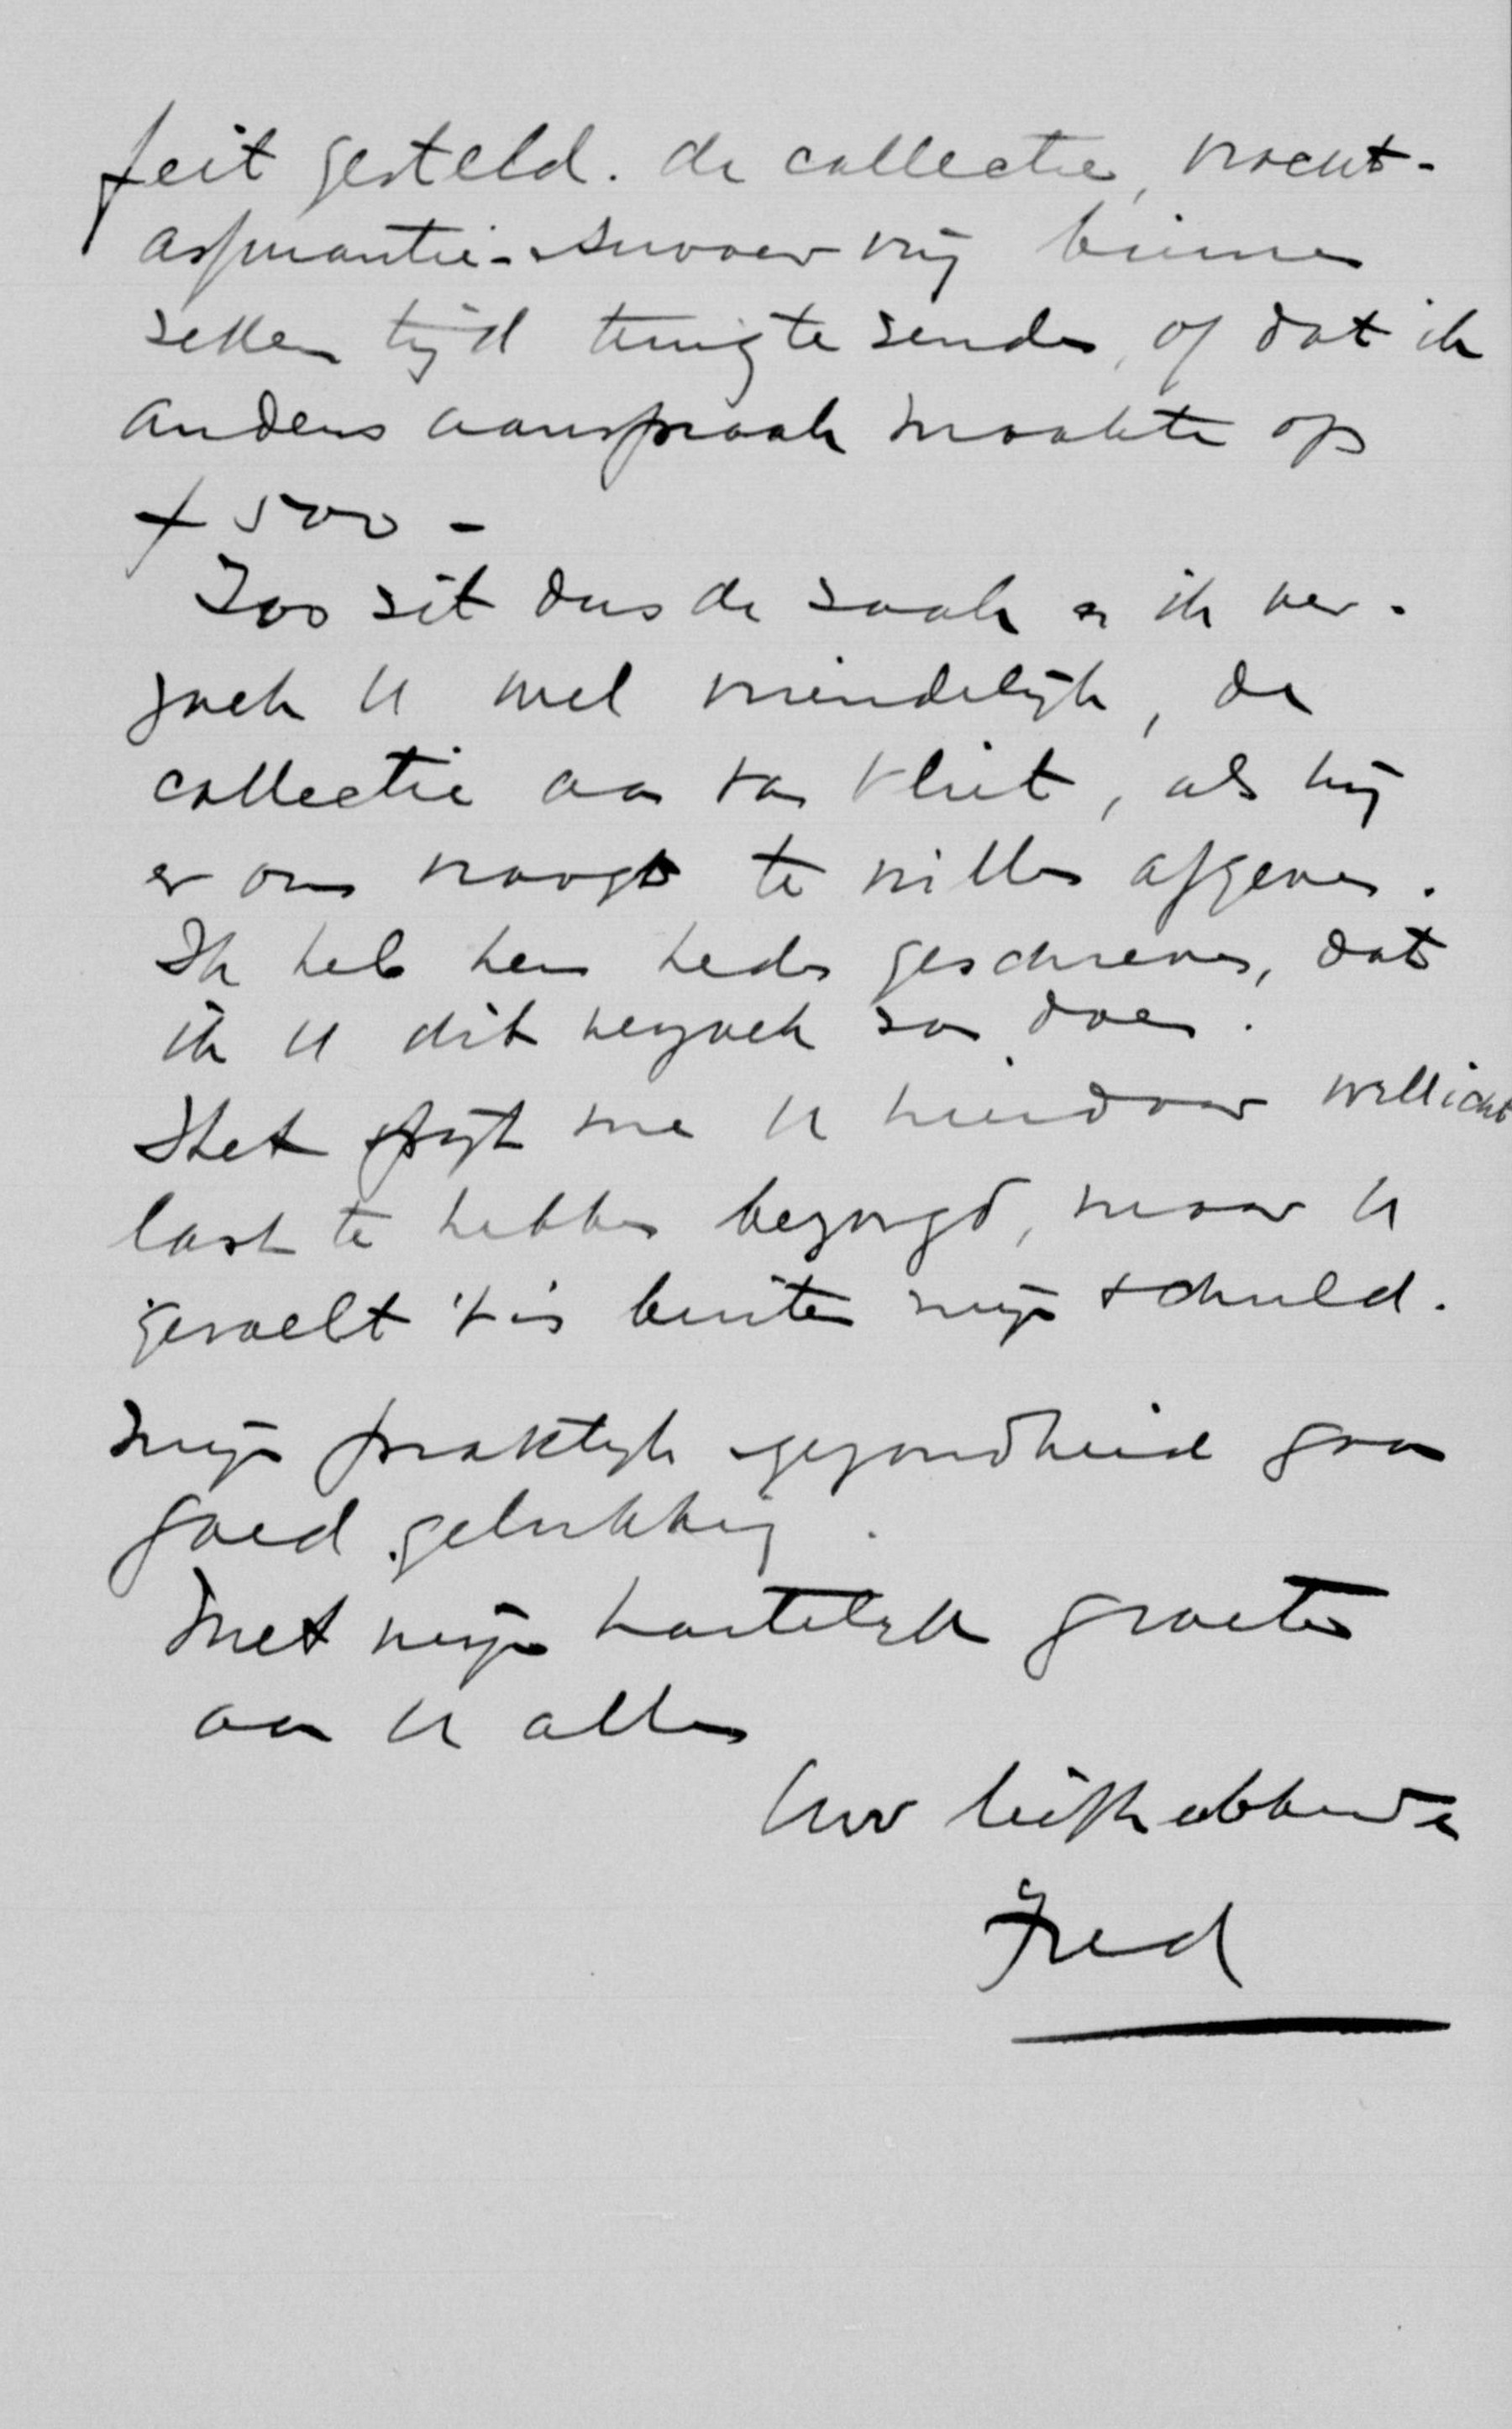 feit gesteld. de collectie, vracht-
assurantie- en invoer vrij binnen
zekeren tijd terug te zenden, of dat ik
anders aanspraak maakte op
f 500 -
Zoo zit dus de zaak en ik ver-
zoek U wel vriendelijk, de
collectie aan van Vliet, als hij
er om vraagt te willen afgeven.
Ik heb hem heden geschreven, dat
ik U dit verzoek zou doen.
Het spijt me U hierdoor wellicht
last te hebben bezorgd, maar U
gevoelt 't is buiten mijn schuld.
Mijn praktijk en gezondheid gaan
goed gelukkig.
Met mijn hartelijke groeten
aan U allen
Uw liefhebbende
Fred